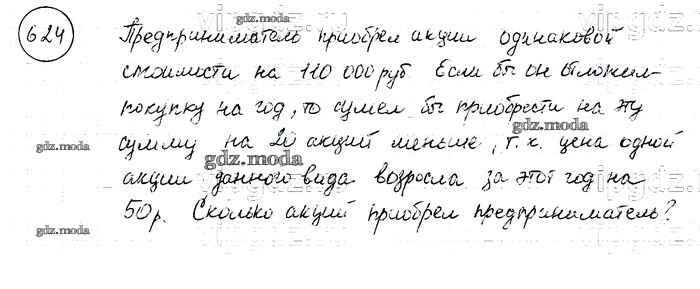 624
Предприниматель приобрел акции одинаковой
стоимости на 110 000 руб Если бы он отложил
покупку на год, то сумел бы приобрести на эту
сумму на 20 акций меньше, т.к. цена одной
акции данного вида возросла за этот год на
50р. Сколько акций приобрел предприниматель?
gdz.moda
gdz.moda
gdz.moda
gdz.moda
gdz.moda
gdz.moda
gdz.moda